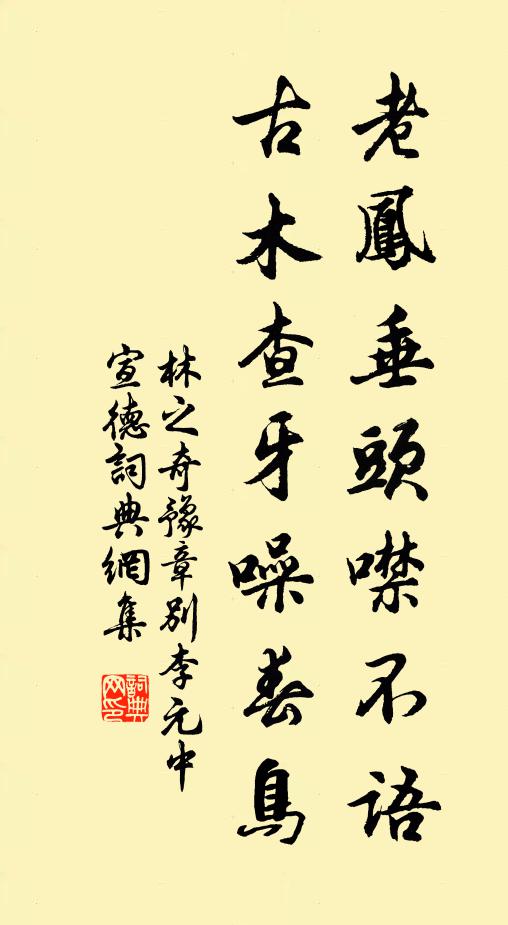 老鳳垂頭噤不語
古木查牙噪春鳥
林之奇豫章別李元中
宣德詞典網集
詞典
网印